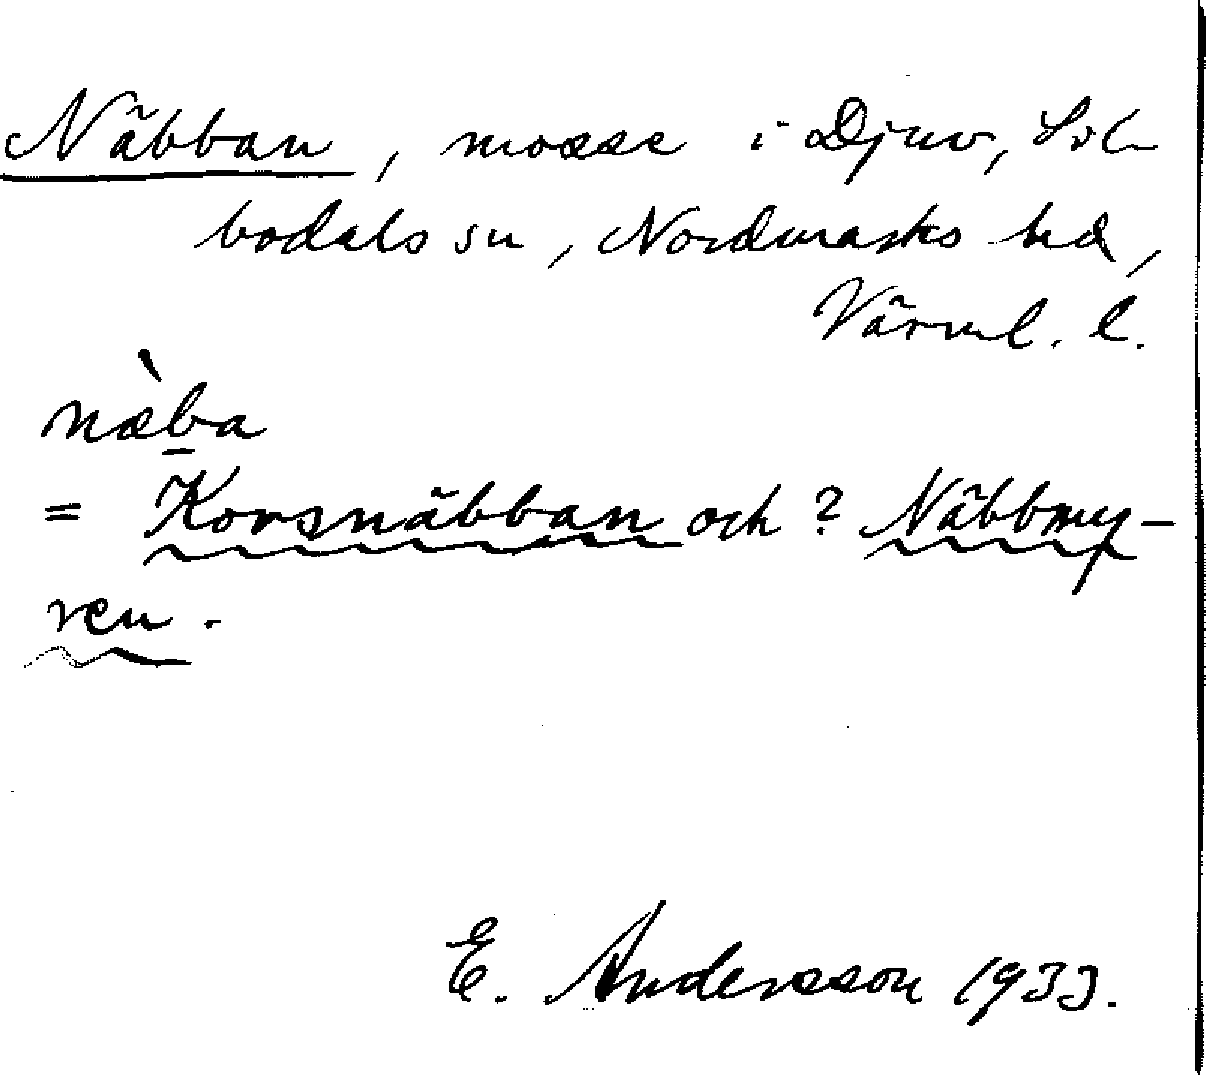 Näbban, mosse i Djuv, Sil-
bodals sn, Nordmarks hd,
Värml. l.
næ̀ba
= Korsnäbban och ? Näbbmy-
ren.
E. Andersson 1933.